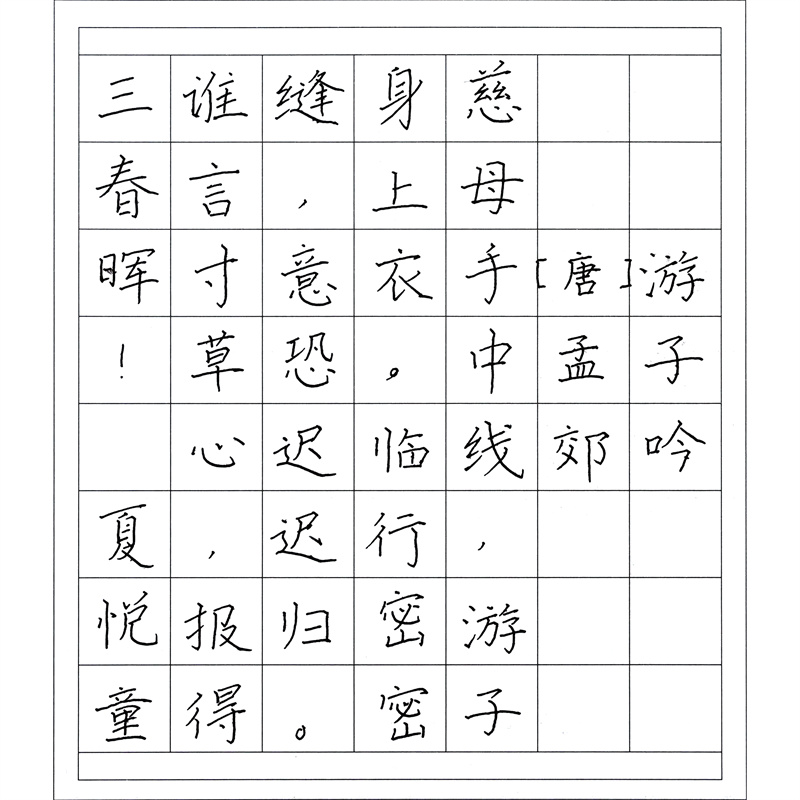 游子吟
[唐]孟郊
慈母手中线，游子
身上衣。临行密密
缝，意恐迟迟归。
谁言寸草心，报得
三春晖！
夏悦童